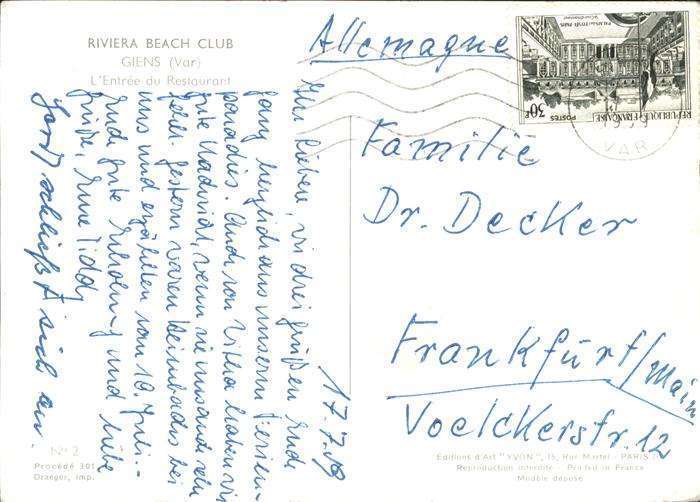 RIVIERA BEACH CLUB
GIENS (Var)
L'Entrée du Restaurant
17.7.59
Ihr Lieben, wir drei grüßen Euch
ganz herzlich aus unserem Ferien
paradies. Auch von Ulla haben wir
gute Nachricht, wenn sie uns auch sehr
fehlt. Gestern waren bei
uns und erzählten vom 10. Juli. -
Euch gute Erholung und liebe
Grüße, Eure
schließt sich an.
Allemagne
Familie
Dr. Decker
Frankfurt/Main
Voelckerstr. 12
30F
POSTES
REPUBLIQUE FRANÇAISE
VAR
N° 2
Procédé 301
Draeger, imp.
Editions d'Art "YVON", 15, Rue Martel - PARIS
Reproduction interdite - Printed in France
Modèle déposé